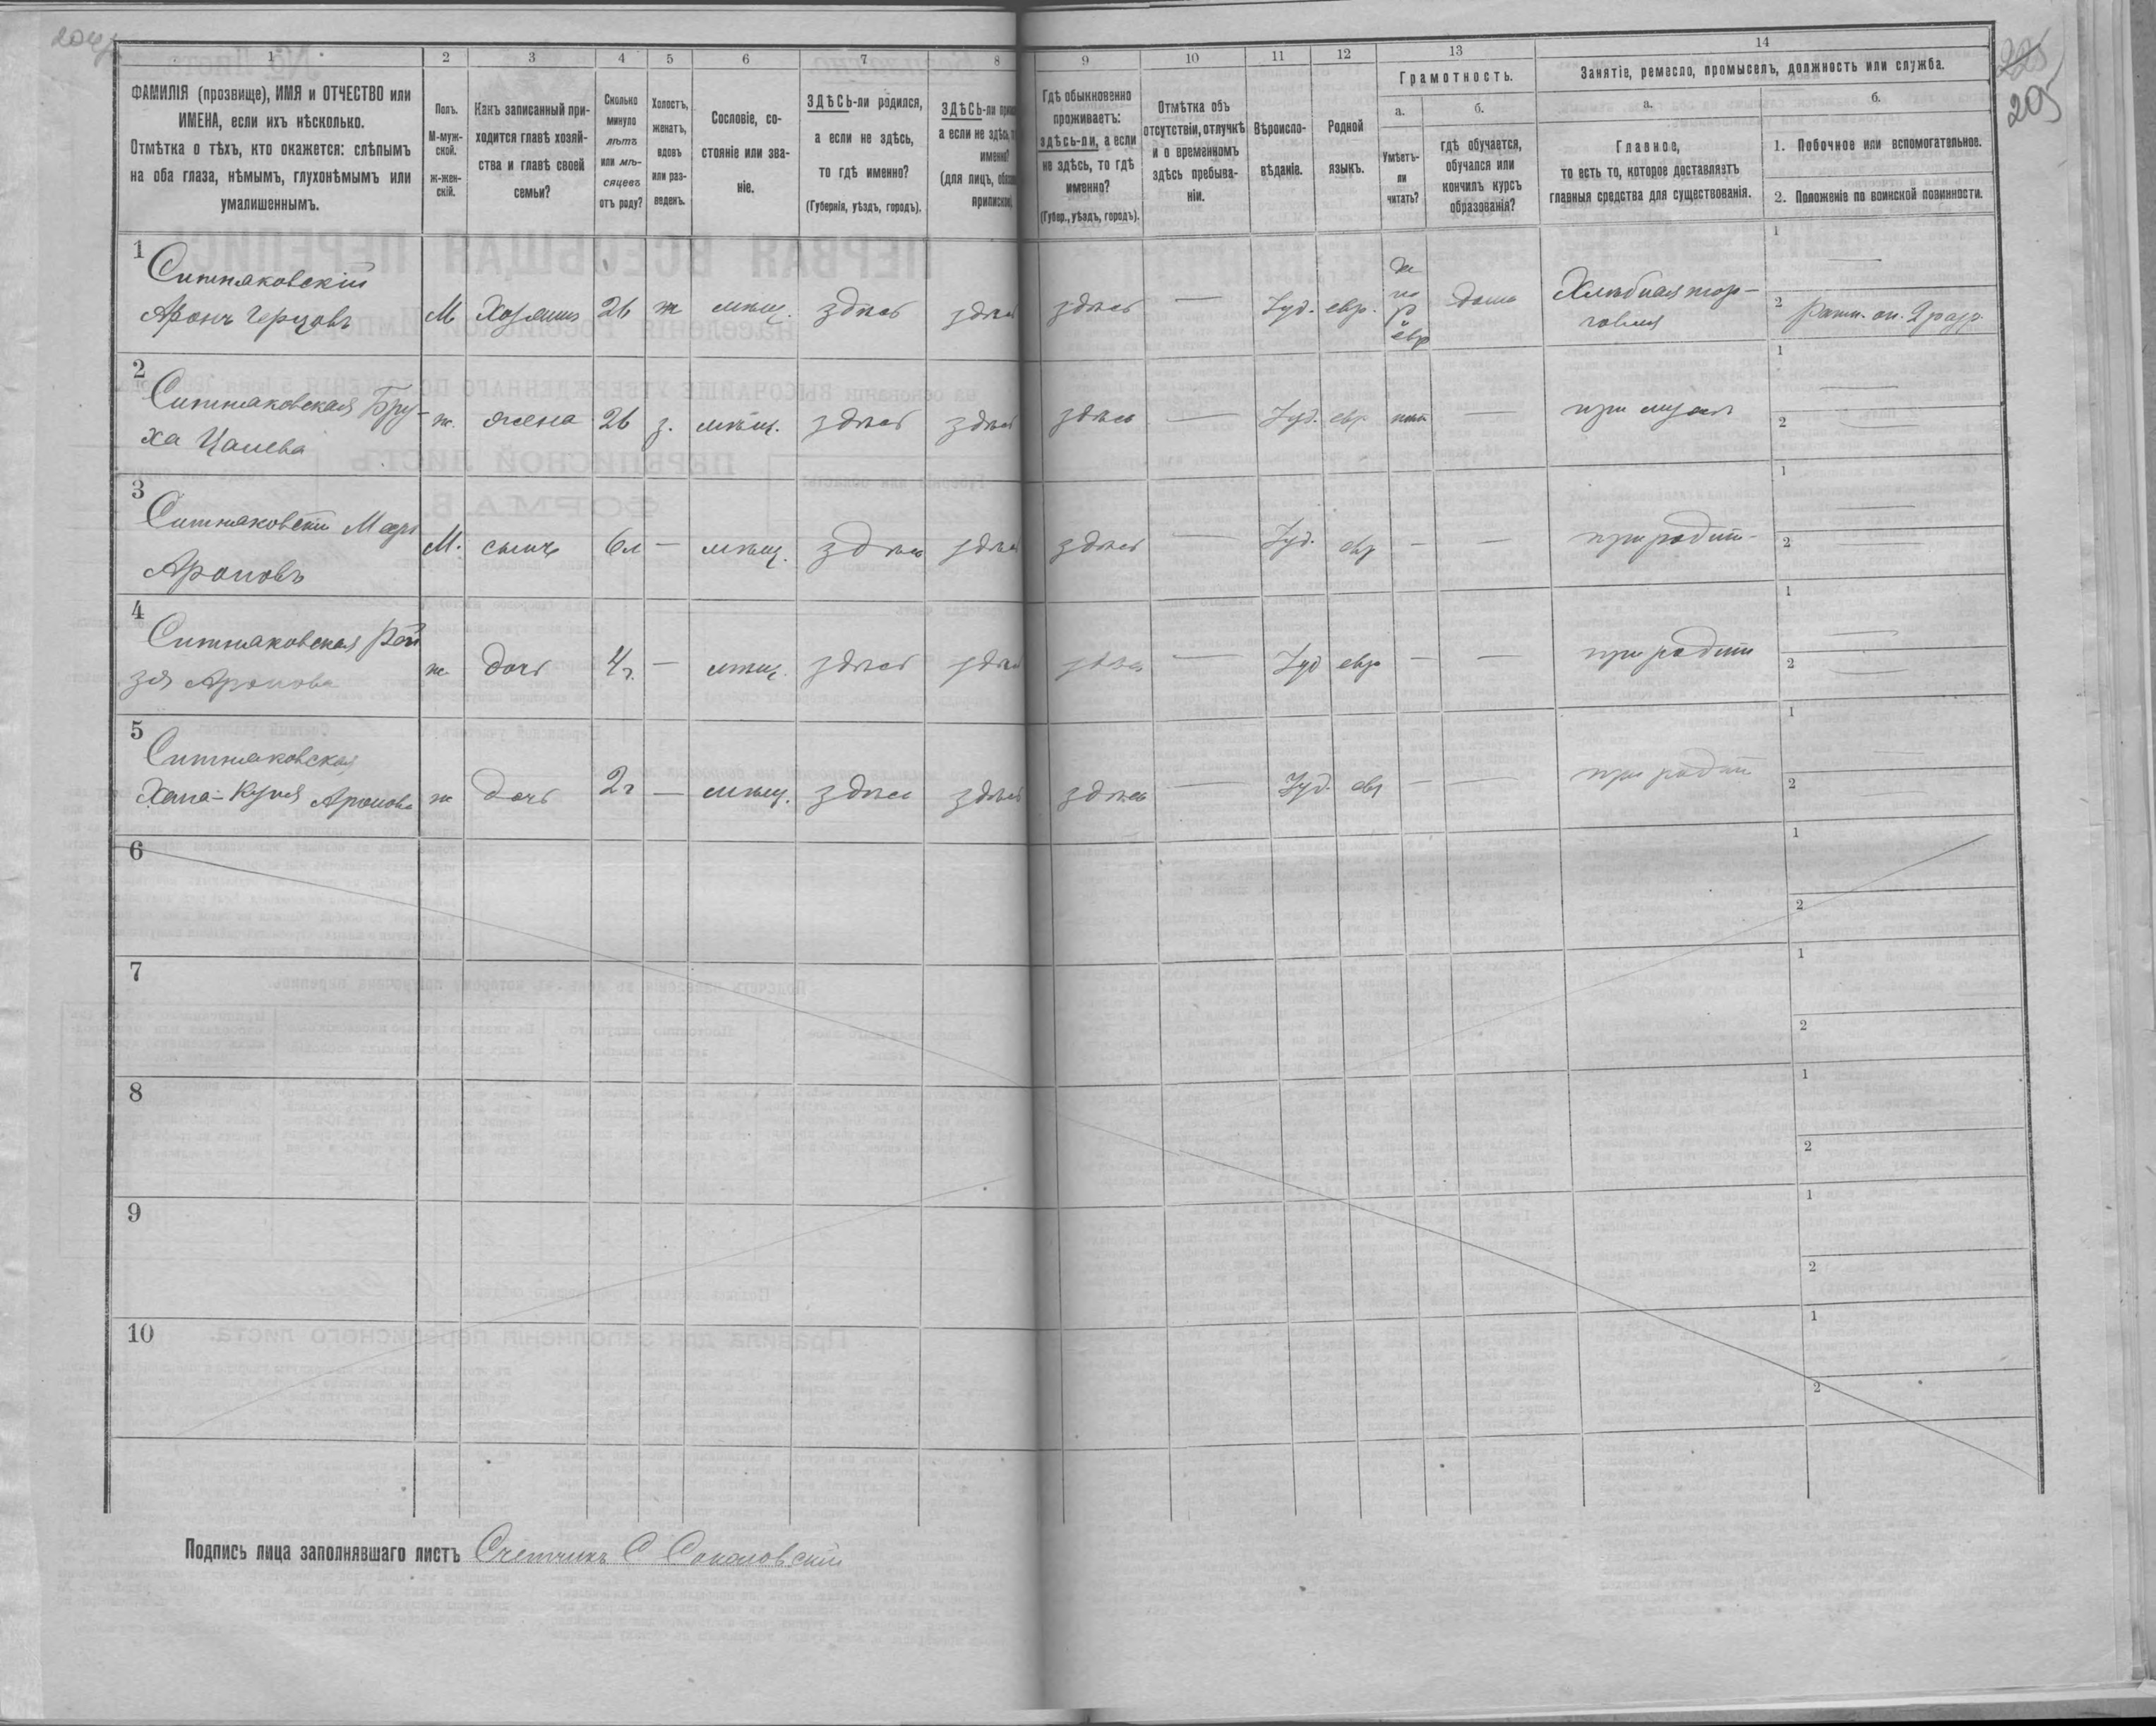 204
225
205
1 2 3 4 5 6 7 8 9 10 11 12 13 14
ФАМИЛІЯ (прозвище), ИМЯ и ОТЧЕСТВО или
ИМЕНА, если ихъ нѣсколько.
Отмѣтка о тѣхъ, кто окажется: слѣпымъ
на оба глаза, нѣмымъ, глухонѣмымъ или
умалишеннымъ.
Полъ.
М-муж-
ской.
ж-жен-
скій.
Какъ записанный при-
ходится главѣ хозяй-
ства и главѣ своей
семьи?
Сколько
минуло
лѣтъ
или мѣ-
сяцевъ
отъ роду?
Холостъ,
женатъ,
вдовъ
или раз-
веденъ.
Сословіе, со-
стояніе или зва-
ніе.
ЗДѢСЬ-ли родился,
а если не здѣсь,
то гдѣ именно?
(Губернія, уѣздъ, городъ).
ЗДѢСЬ-ли
а если не здѣсь,
именно?
(для лицъ,
Гдѣ обыкновенно
проживаетъ:
здѣсь-ли, а если
не здѣсь, то гдѣ
именно?
(Губер., уѣздъ, городъ).
Отмѣтка объ
отсутствіи, отлучкѣ
и о временномъ
здѣсь пребыва-
ніи.
Вѣроиспо-
вѣданіе.
Родной
языкъ.
Грамотность.
а.
Умѣетъ-
ли
читать?
б.
гдѣ обучается,
обучался или
кончилъ курсъ
образованія?
Занятіе, ремесло, промыселъ, должность или служба.
а.
Главное,
то есть то, которое доставляетъ
главныя средства для существованія.
б.
1. Побочное или вспомогательное.
2. Положеніе по воинской повинности.
1
Ситняковскій
Аронъ Герцовъ М Хозяинъ 26 ж мѣщ. здѣсь здѣсь здѣсь — Іуд. евр. дома Хлѣбная тор-
говля
1 —
2 Ратн. оп. 2 разр.
2
Ситняковская Бру-
ха Цалева ж. жена 26 з. мѣщ. здѣсь здѣсь здѣсь — Іуд. евр. нѣтъ — при мужѣ
1 —
2 —
3
Ситняковскій
Ароновъ М. сынъ 6л — мѣщ. здѣсь здѣсь здѣсь — Іуд. евр — — при родит-
1 —
2 —
4
Ситняковская Рей
зя Аронова ж дочь 4г. — мѣщ. здѣсь здѣсь здѣсь — Іуд евр — — при родит
1 —
2 —
5
Ситняковская
Хана- Аронова ж дочь 2г — мѣщ. здѣсь здѣсь здѣсь — Іуд. евр — — при родит
1 —
2 —
6 1
2
7 1
2
8 1
2
9 1
2
10 1
2
Подпись лица заполнявшаго листъ Счетчикъ С Соколовскій